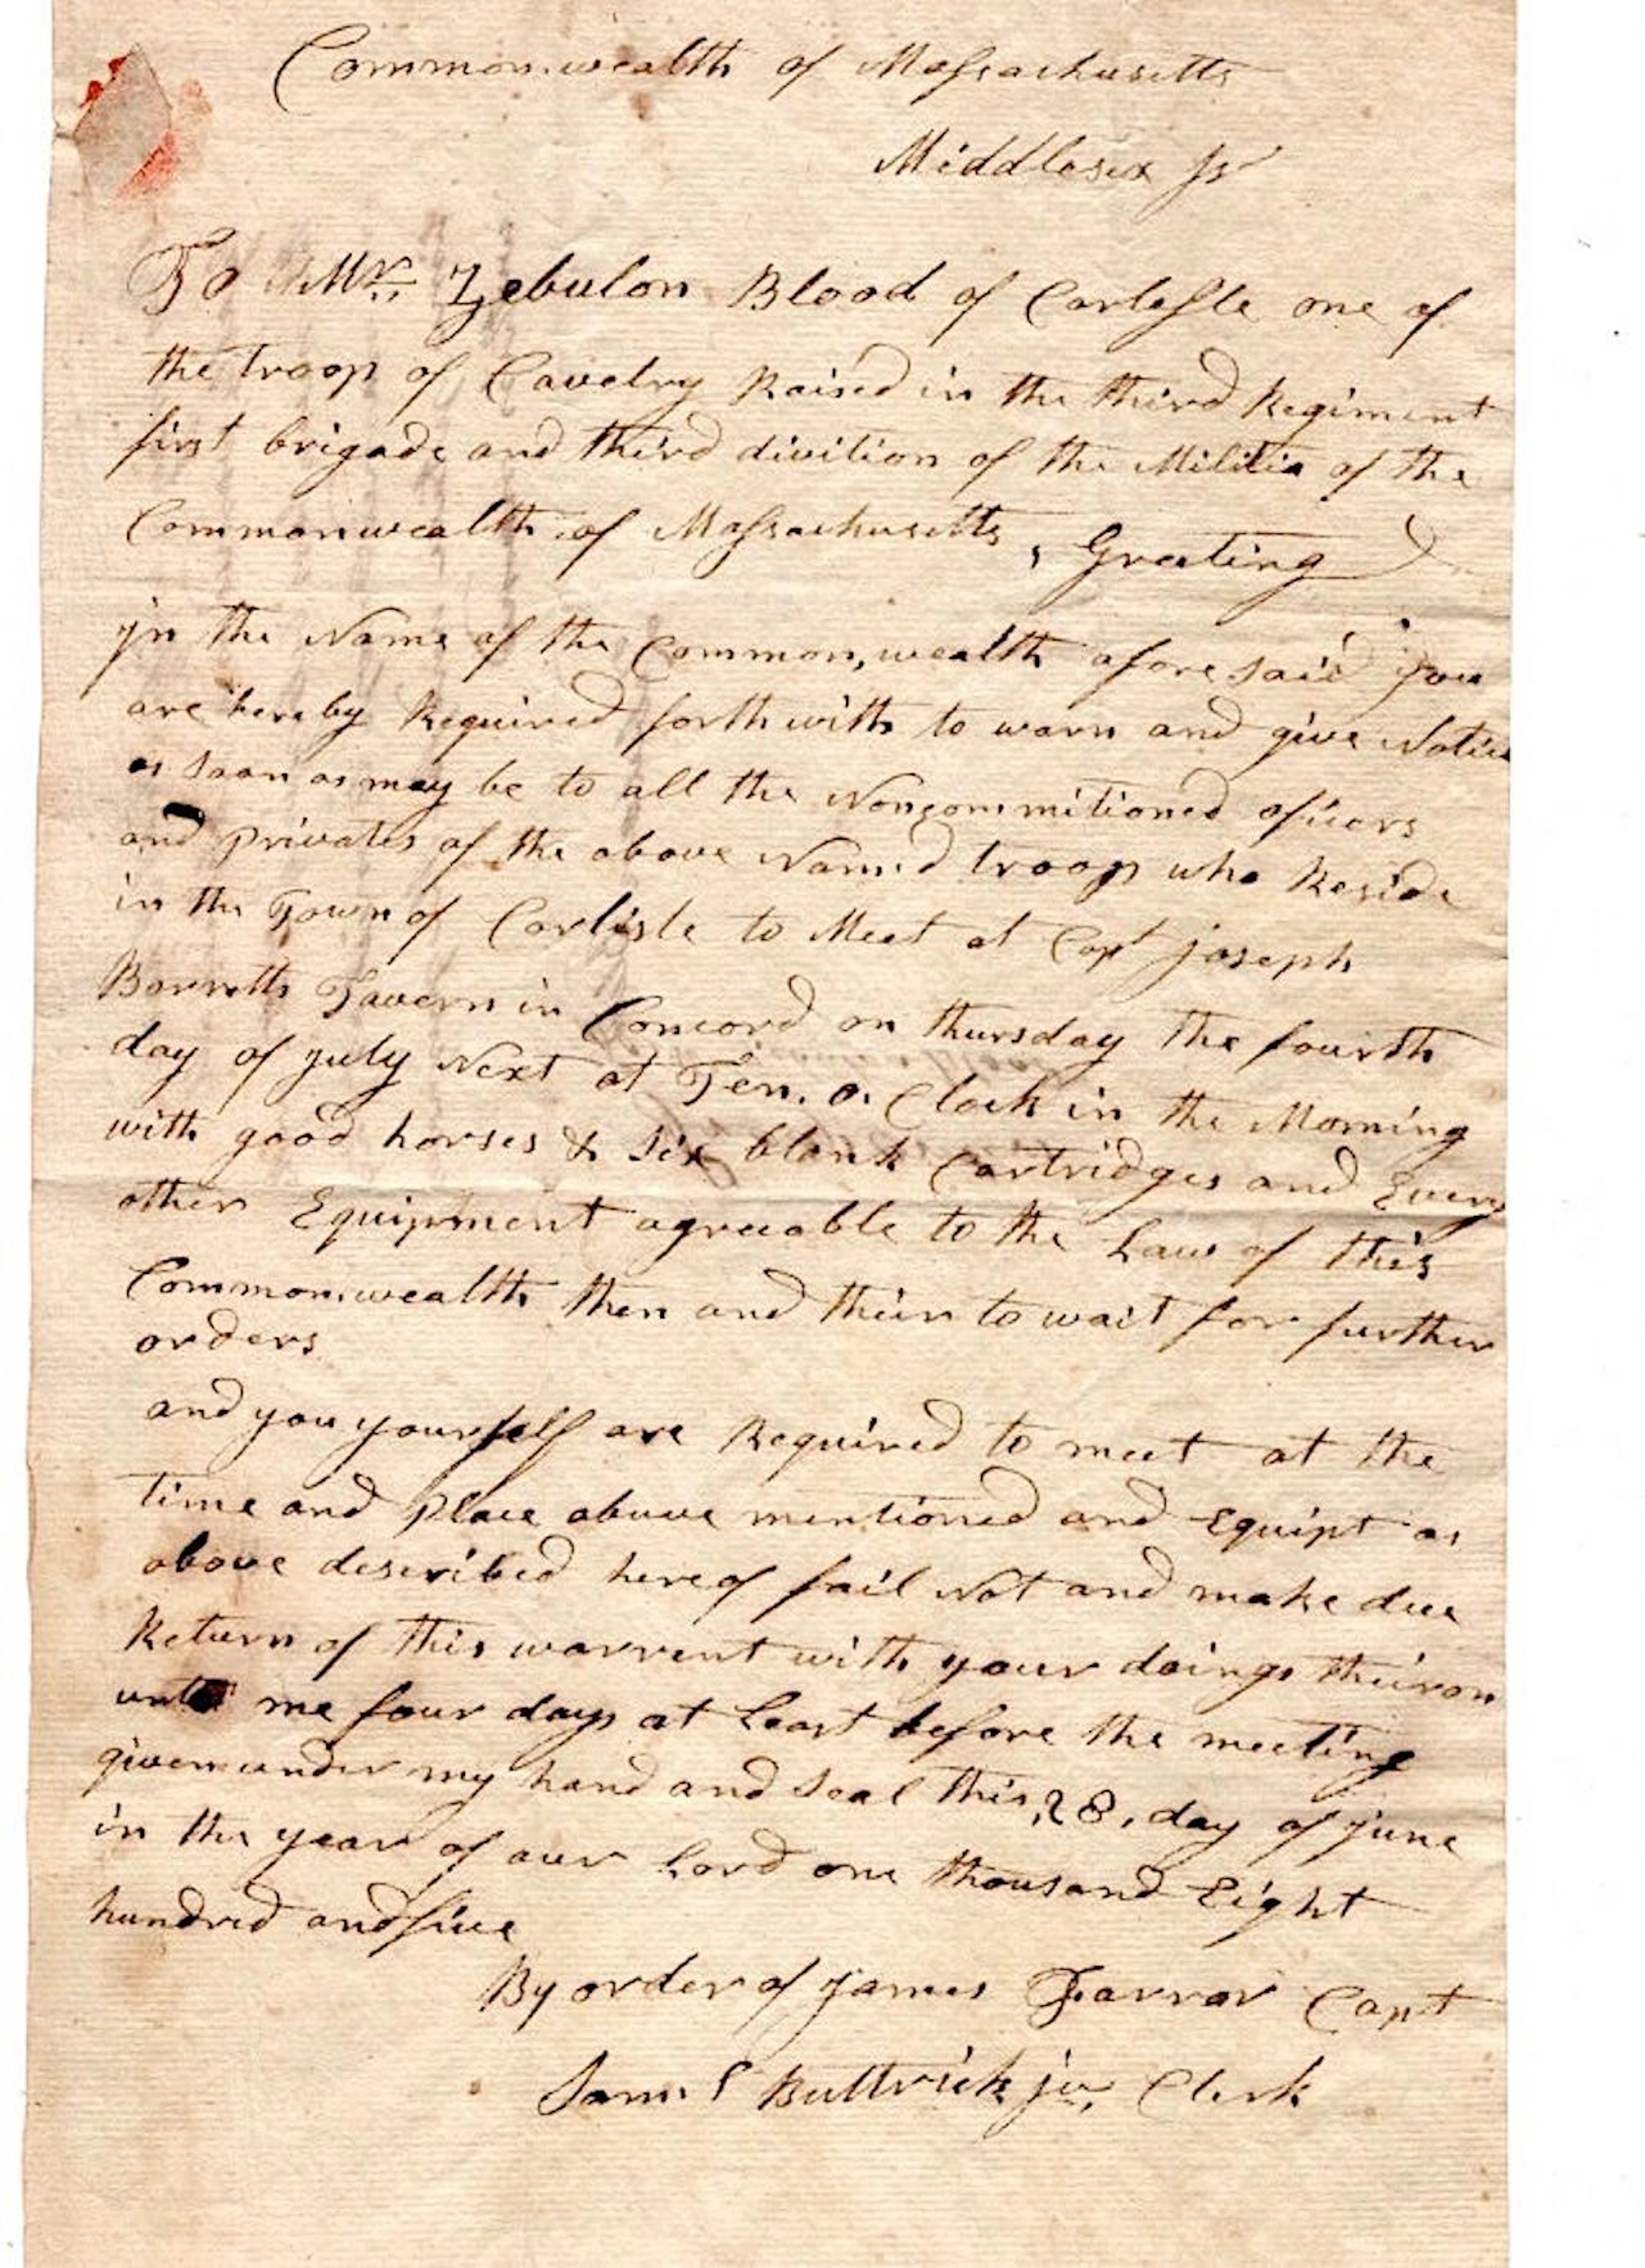 Commonwealth of Massachusetts
Middlesex ss
To Mr. Zebulon Blood of Carleſle one of
the troop of Cavelry Raised in the third Regiment
first brigade and third divition of the Militia of the
Commonwealth of Massachusetts, Greeting
in the Name of the Common,wealth afore said you
are hereby Required forthwith to warn and give Notice
as soon as may be to all the Noncommitioned oficers
and privates of the above Named troop who Reside
in the Town of Carlisle to Meet at Capt joseph
Barretts Tavern in Concord on thursday the fourth
day of july Next at Ten. o. Clock in the Morning
with good horses & six blank Cartridges and Every
other Equipment agreeable to the Law of this
Commonwealth then and their to wait for further
orders
and you yourself are Required to meet at the
time and place above mentioned and Equipt as
above described hereof fail Not and make due
Return of this warrent with your doings theiron
unto me four days at Least before the meeting
given under my hand and seal this, 28, day of june
in the year of our Lord one thousand Eight
hundred and five
By order of james Farrar Capt
Saml Buttrick jur, Clerk